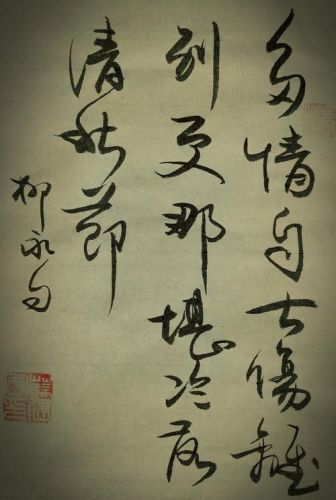 多情自古傷離
別更那堪冷落
清秋節
柳永句